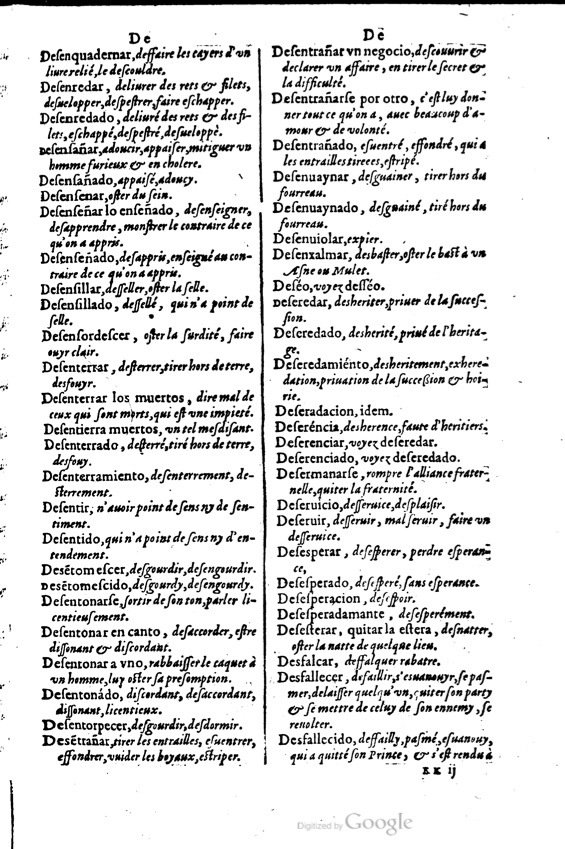 De
Desenquadernar, deffaire les cayers d'vn
liure relié, le descouldre.
Desenredar, deliurer des rets & filets,
desuelopper, despestrer, faire eschapper.
Desenredado, deliuré des rets & des fi-
lets, eschappé, despestré, desueloppé.
Desensañar, adoucir, appaiser, mitiguer vn
homme furieux & en cholere.
Desensañado, appaisé, adoucy.
Desensenar, oster du sein.
Desenseñar lo enseñado, desenseigner,
desapprendre, monstrer le contraire de ce
qu'on a appris.
Desenseñado, desappris, enseigné au con-
traire de ce qu'on a appris.
Desensillar, desseller, oster la selle.
Desensillado, dessellé, qui n'a point de
selle.
Desensordescer, oster la surdité, faire
ouyr clair.
Desenterrar, desterrer, tirer hors de terre,
desfouyr.
Desenterrar los muertos, dire mal de
ceux qui sont morts, qui est vne impieté.
Desentierra muertos, vn tel mesdisant.
Desenterrado, desterré, tiré hors de terre,
desfouy.
Desenterramiento, desenterrement, de-
sterrement.
Desentir, n'auoir point de sens ny de sen-
timent.
Desentido, qui n'a point de sens ny d'en-
tendement.
Desẽtomescer, desgourdir, desengourdir.
Desẽtomescido, desgourdy, desengourdy.
Desentonarse, sortir de son ton, parler li-
centieusement.
Desentonar en canto, desaccorder, estre
dissonant & discordant.
Desentonar a vno, rabbaisser le caquet à
vn homme, luy oster sa presomption.
Desentonádo, discordant, desaccordant,
dissonant, licentieux.
Desentorpecer, desgourdir, desdormir.
Desẽtrañar, tirer les entrailles, esuentrer,
effondrer, vuider les boyaux, estriper.
De
Desentrañar vn negocio, descouurir &
declarer vn affaire, en tirer le secret &
la difficulté.
Desentrañarse por otro, c'est luy don-
ner tout ce qu'on a, auec beaucoup d'a-
mour & de volonté.
Desentrañado, esuentré, effondré, qui a
les entrailles tirees, estripé.
Desenuaynar, desguainer, tirer hors du
fourreau.
Desenuaynado, desguainé, tiré hors du
fourreau.
Desenuiolar, expier.
Desenxalmar, desbaster, oster le bast à vn
Asne ou Mulet.
Deséo, voyez desséo.
Deseredar, desheriter, priuer de la succes-
sion.
Deseredado, desherité, priué de l'herita-
ge.
Deseredamiénto, desheritement, exhere-
dation, priuation de la succession & hoi-
rie.
Deseradacion, idem.
Deseréncia, desherence, faute d'heritiers.
Deserenciar, voyez deseredar.
Deserenciado, voyez deseredado.
Desermanarse, rompre l'alliance frater-
nelle, quiter la fraternité.
Deseruicio, desseruice, desplaisir.
Deseruir, desseruir, mal seruir, faire vn
desseruice.
Desesperar, desesperer, perdre esperan-
ce,
Desesperado, desesperé, sans esperance.
Desesperacion, desespoir.
Desesperadamante, desesperément.
Desesterar, quitar la estera, desnatter,
oster la natte de quelque lieu.
Desfalcar, deffalquer rabatre.
Desfallecer, defaillir, s'esuanouyr, se pas-
mer, delaisser quelqu'vn, quiter son party
& se mettre de celuy de son ennemy, se
reuolter.
Desfallecido, deffailly, pasmé, esuanouy,
qui a quitté son Prince, & s'est rendu à
KK ij
Digitized by Google